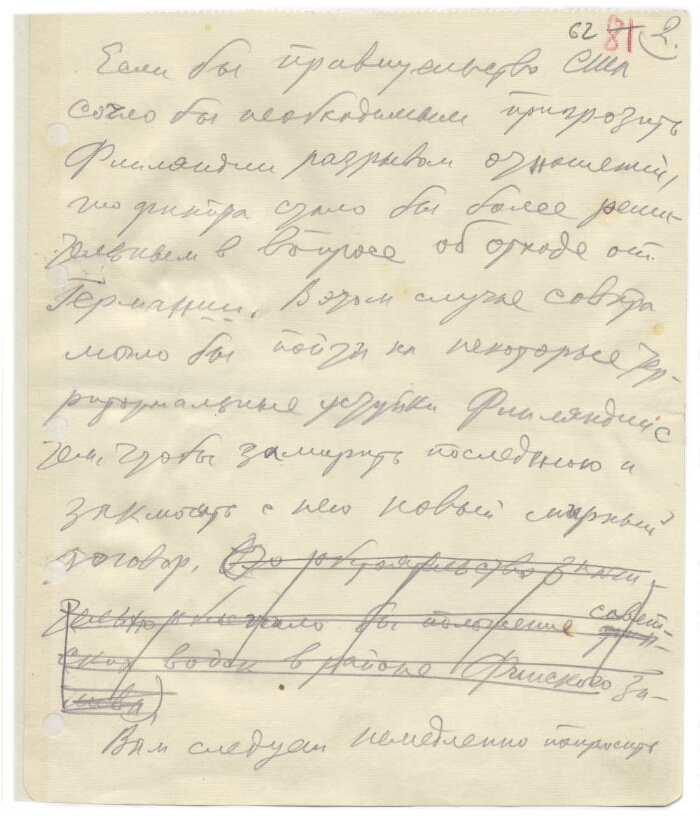 62 81 2.
Если бы правительство США
сочло бы необходимым пригрозить
Финляндии разрывом отношений,
то финпра стало бы более реши-
тельным в вопросе об отходе от
Германии. В этом случае совпра
могло бы пойти на некоторые тер-
риториальные уступки Финляндии с
тем, чтобы замирить последнюю и
заключить с нею новый мирный
договор. (Это обстоятельство значи-
тельно облегчило бы положение совет-
ских войск в районе Финского за-
лива)
Вам следует немедленно попросить